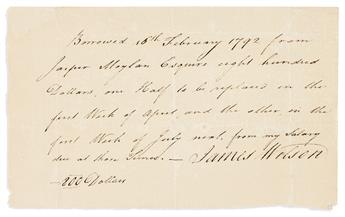 Borrowed 16th February 1792 from
Jasper Moylan Esquire eight hundred
Dollars, one Half to be replaced in the
first Week of April, and the other, in the
first Week of July next, from my Salary
due at those Times. — James Wilson
800 Dollars